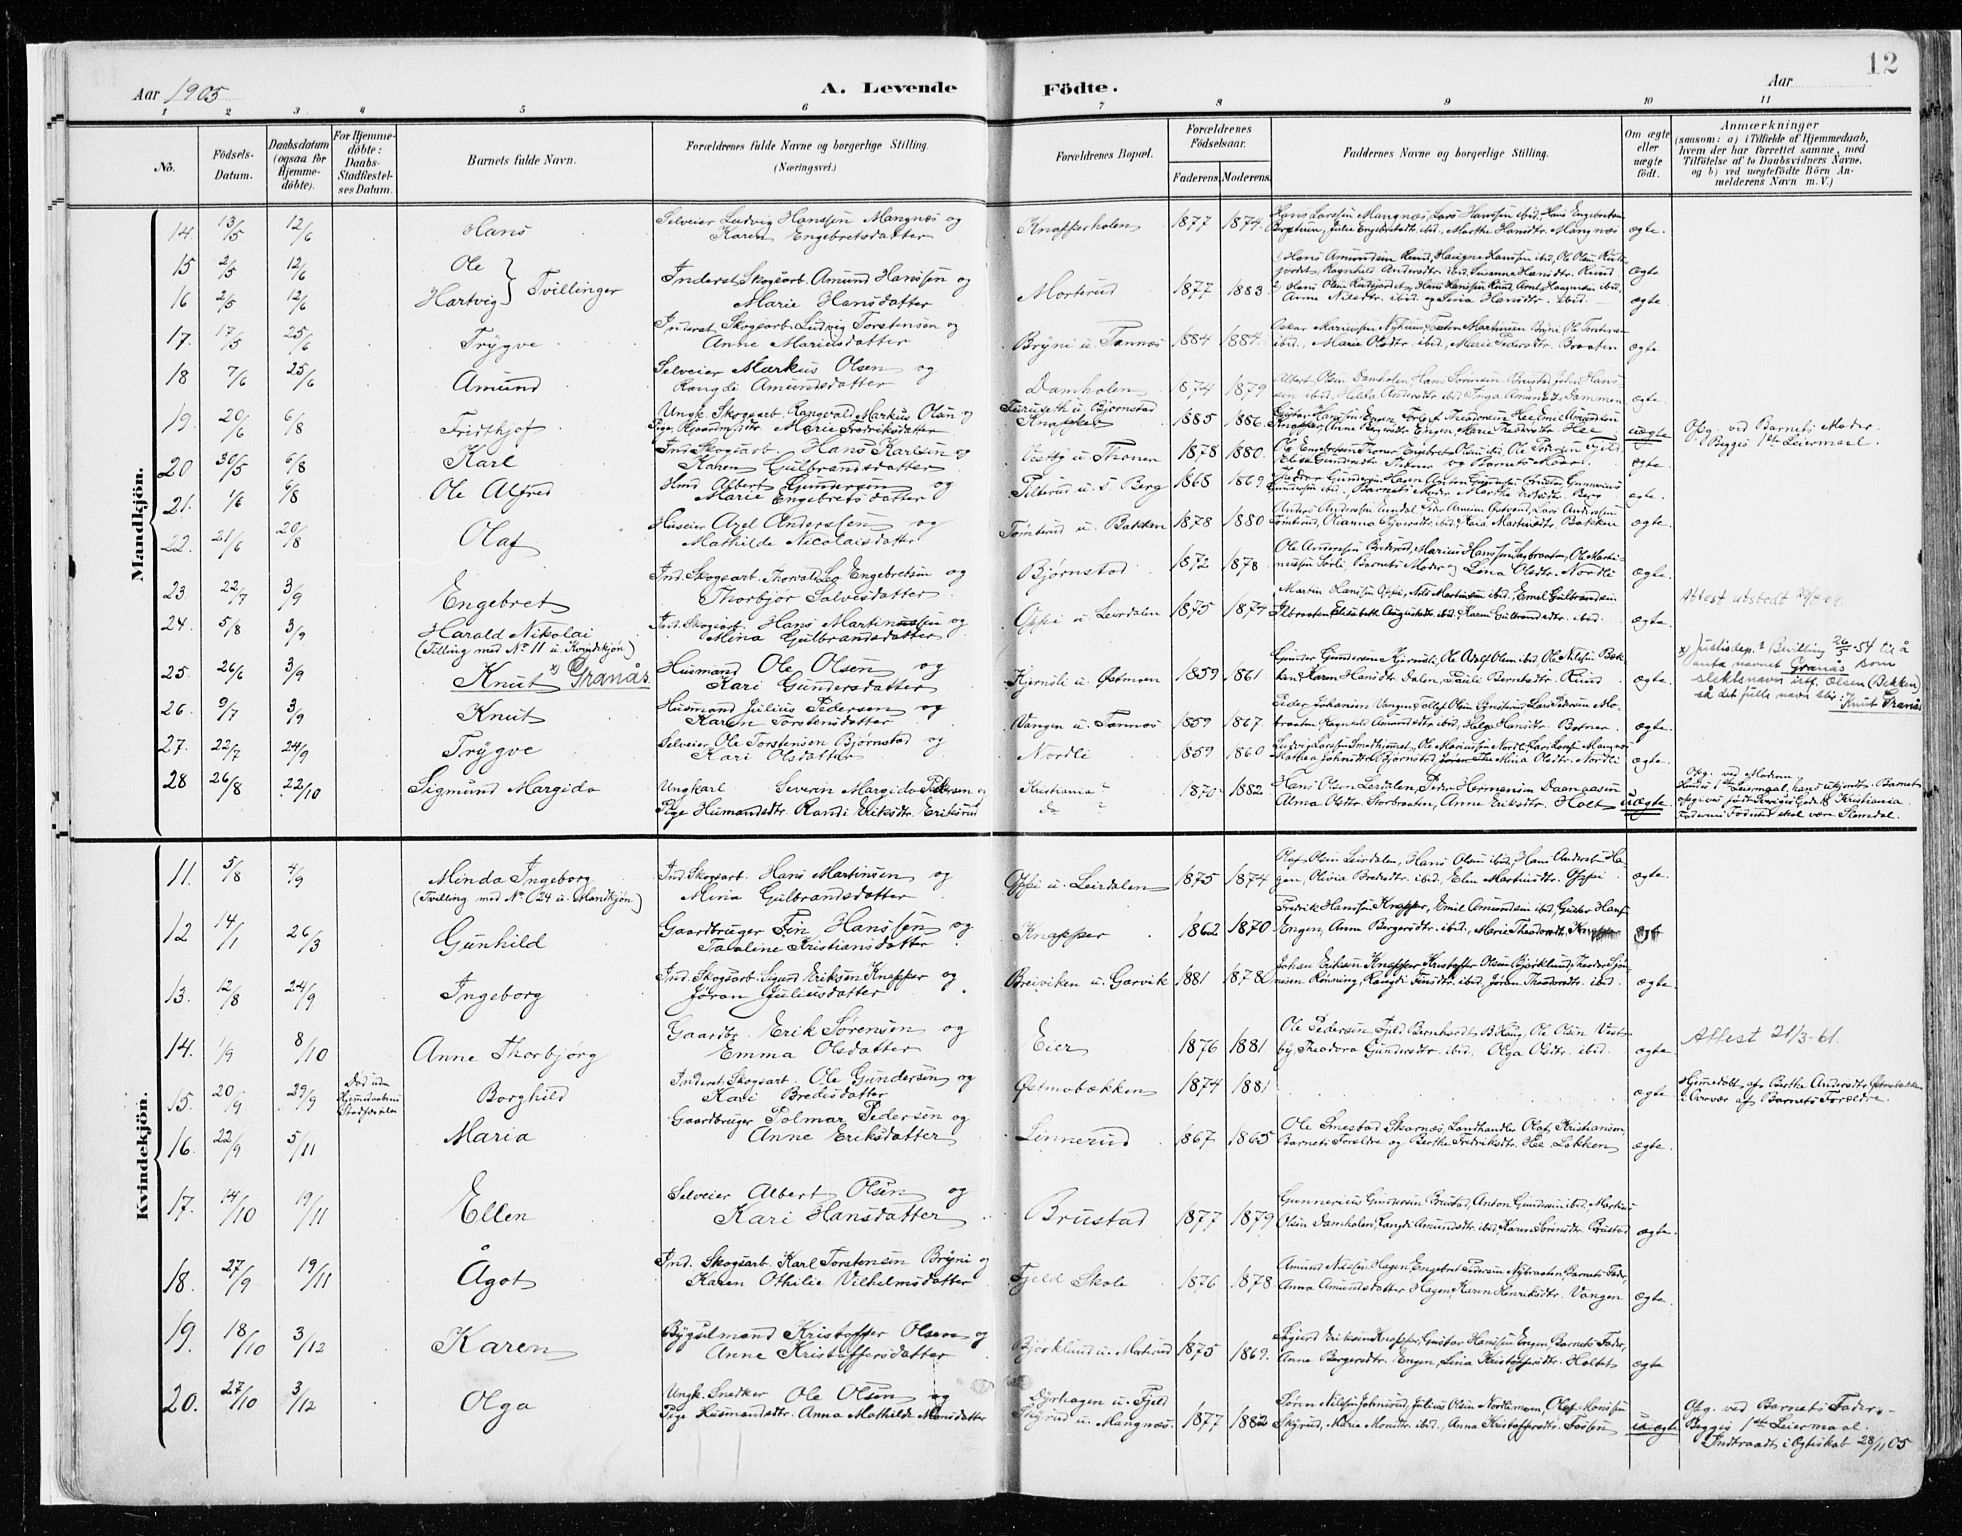 12
Aar 1905 A. Levende Födte. Aar
1 2 3 4 5 6 7 8 9 10 11
No. Födsels-Datum. Daabsdatum (ogsaa for Hjemme-döbte). For Hjemme-döbte: Daabs-Stadfæstel-ses Datum. Barnets fulde Navn. Forældrenes fulde Navne og borgerlige Stilling. (Næringsvei.) Forældrenes Bopæl. Forældrenes Födselsaar. Faderens. Moderens. Faddernes Navne og borgerlige Stilling. Om ægte eller uægte födt. Anmærkninger (saasom: a) i Tilfælde af Hjemmedaab, hvem der har forrettet samme, med Tilföielse af to Daabsvidners Navne. og b) ved uægtefödte Börn An-melderens Navn m. V.)
Mandkjön.
14. 13/5 12/6 Hans Selveier Ludvig Hanssen Mangnæs og Karen Engebretsdatter Knapperholen 1877 1874 Hans Larssen Mangnæs, Lars Hanssen ibid, Hans Engebretsen Julie Engebretsdtr. ibid., Marthe Hansdtr. Mangnæs ægte.
15 2/5 12/6 Ole
16 2/5 12/6 Hartvig } Tvillinger Inderst Skogsarb. Amund Hanssen og Marie Hansdatter Morterud 1877 1883 Hans Amundsen Ruud, ibid, Ole Olsen Ragnhild Andersdtr. ibid, Susanne Hansdtr. Ruud ægte
Anne Nilsdtr. ibid og Lina Hansdtr. ibid. ægte.
17. 17/5 25/6 Trygve Inderst Skogsarb. Ludvig Torstensen og Anne Mariusdatter Bryni u. Tannæs 1884 1884. Oskar Mariussen Torsten Martinsen Bryni Ole Torstensen ibid., Marie Olsdtr. ibid., Marie Pedersdtr. Braaten ægte
18 7/6 25/6 Amund Selveier Markus Olsen og Rangdi Amundsdatter Damholen 1874 1879 Albert Olsen Damholen, Hans Sørensen Brustad, John Hanssen ibid, Helda Andersdtr. ibid, Inga Amundsdtr. Sammen ægte.
19. 20/6 6/8 Fridthjof Ungk. Skogsarb. Rangvald Markus Olsen og Pige Marie Fredriksdatter Furuseth u. Bjørnstad Knapper 1885 1886. Gustav Hanssen Engen, Torlef Theodorsen Hee, Emil Amundsen Knapper, Anne Bergersdtr. Engen, Marie Theodorsdtr. Hee uægte Opg. ved Barnets Moder. Begges 1ste Leiermaal.
20 30/5 6/8 Karl Ind. Skogsarb. Hans Karlsen og Karen Gulbrandsdatter u. Thoner 1878 1880. Ole Engebretsen Thoner, Engebret Olsen ibid, Ole Pedersen Fjeld og Barnets Moder. ægte.
21. 1/6 6/8 Ole Alfred Hmd Albert Gundersen og Marie Engebretsdatter Pilterud u. Berg 1868 1869 Barnets Moder, Marthe Berg ægte.
22. 21/6 20/8 Olaf Huseier Axel Anderssen og Mathilde Nicolaisdatter Tømterud u. Bakken 1878 1880 Anders Anderssen Lars Anderssen Tømterud, Olianna ibid, Kaia Martinsdtr. Bakken ægte
23 22/7 3/9 Engebret Ind. Skogsarb. Thorvald Engebretsen og Thorbjør Salvesdatter Bjørnstad 1872 1878 Ole Anderssen Marius Hanssen Ole Martinussen Sorli, Barnets Moder og Lina Olsdtr. Nordli ægte.
24. 5/8 3/9 Harald Nikolai (Tvilling med No 11 u. Kvindekjøn) Ind. Skogsarb. Hans Martinussen og Mina Gulbrandsdatter Oppi u. Leirdalen 1875 1874 Martin Hanssen Oppi, Nils Martinsen ibid., Emil Gulbrandsen Elisabeth Augustsdtr. ibid., Karen Gulbrandsdtr. ibid. ægte. Attest utstedt
25. 26/6 3/9 Knut x) Granås. Husmand Ole Olsen og Kari Gundersdatter Kjernsli u. Østmoen 1859 1861 Gunder Gundersen Kjernsli, Ole Adolf Olsen ibid, Ole Nilsen Bekken, Karen Hansdtr. Dalen, Pauli Berntsdtr. Ruud ægte. x) Justisdep.s Bevilling 26/5-54 til å anta navnet Granås som slektsnavn istf. Olsen (Bekken) så det fulle navn blir: Knut Granås
26. 9/7 3/9 Knut Husmand Julius Pedersen og Karen Torstensdatter Vangen u. Tannæs 1859 1867 Peder Johansen Vangen, Tollef Olsen Lars Pedersen Ragnhild Amundsdtr. ibid, Helga Hansdtr. Botner ægte.
27. 22/7 24/9 Trygve Selveier Ole Torstensen Bjørnstad og Kari Olsdatter Nordli 1859 1860 Ludvig Larssen Smedhummet, Ole Mariussen Nordli, Lars Larsen Mangnæs Mathea Johnsdtr. Bjørnstad Mina Olsdtr. Nordli ægte.
28 26/8 22/10 Sigmund Margido Ungkarl Severin Margido Pedersen og Pige Husmandsdtr. Randi Eriksdtr. Eriksrud Kristiania ? do ? 1870 1882 Hans Olsen Leirdalen, Peder Hermansen Daangaasen Alma Olsdtr. Storbraaten, Anne Eriksdtr. Holt uægte Opg. ved Moderen. Hendes 1ste Leiermaal, hans ukjendt. Barnet opgives født Sverigesgade 8 Kristiania Faderens Fødested skal være Slemdal.
Kvindekjön.
11. 5/8 4/9 Minda Ingeborg (Tvilling med No 24 u. Mandkjøn) Ind. Skogsarb. Hans Martinsen og Mina Gulbrandsdatter Oppi u. Leirdalen 1875 1874 Olaf Olsen Leirdalen, Hans Olsen ibid., Hans Andersen Hagen, Olivia Bredesdtr. ibid., Elen Martinsdtr. Oppi ægte.
12 14/1 26/3 Gunhild Gaardbruger Fin Hanssen og Pauline Kristiansdatter Knapper 1862 1870 Fredrik Hanssen Knapper, Emil Amundsen ibid, Gustav Hanssen Engen, Anne Bergersdtr. ibid., Marie Theodorsdtr.
13. 12/8 24/9 Ingeborg Ind. Skogsarb. Sigurd Eriksen Knapper og Jøran Juliusdatter Breiviken u. Garvik 1881 1878 Johan Eriksen Knapper, Kristoffer Olsen Bjørklund, Rangdi Finsdtr. ibid, Jøran Theodorsdtr. ibid. ægte.
14. 1/9 8/10 Anne Thorbjørg Gaardbr. Erik Sørensen og Emma Olsdatter Eier 1876 1881 Ole Pedersen Fjeld, Bernhardt B. Haug, Ole Olsen Vestby, Theodora Gundersdtr. ibid, Olga Olsdtr. ibid. ægte Attest 21/3-61.
15. 20/9 29/9 Død uden Hjemmedaabens Stadfæstelse Borghild Inderst Skogsarb. Ole Gundersen og Kari Bredesdatter Østmobækken 1874 1881 ægte Hjemedøbt af Berthe Andersdtr. Østmobækken i Overvær af Barnets Forældre.
16. 22/9 5/11 Maria Gaardbruger Polmar Pedersen og Anne Eriksdatter Linnerud 1867 1865 Ole Smestad Skarnæs, Landhandler Olaf Kristiansen Barnets Forældre og Berthe Fredriksdtr. Hee Løkken ægte.
17. 14/10 19/11 Ellen Selveier Albert Olsen og Kari Hansdatter Brustad 1877 1879 Gunnerius Gundersen Brustad, Anton Gundersen ibid, Markus Olsen Damholen, Rangdi Amundsdtr. ibid, Karen Sørensdtr. Brustad ægte.
18. 27/9 19/11 Ågot Ind. Skogsarb. Karl Torstensen Bryni og Karen Othilie Vilhelmsdatter Fjeld Skole 1876 1878 Amund Nilssen Hagen, Engebret Pedersen Nybraaten, Barnets Fader, Anna Amundsdatter Hagen, Karen Henriksdtr. Vangen ægte.
19. 18/10 3/12 Karen Bygselmand Kristoffer Olsen og Anne Kristoffersdatter Bjørklund u. Morterud 1875 1869. Sigurd Eriksen Knapper, Gustav Hanssen Engen, Barnets Fader, Anne Bergersdtr. Engen, Lina Kristoffersdtr. Holtet ægte
20. 27/10 3/12 Olga Ungk. Snedker Ole Olsen og Pige Husmandsdtr. Anna Mathilde Monsdatter Dyrhagen u. Fjeld Skyrud u. Mangnæs 1877 1882 Søren Nilssen Julius Olsen Nordlimoen, Olaf Monssen Skyrud, Marie Monsdtr. ibid, Anna Kristoffersdtr. Fossen uægte Opg. ved Barnets Fader. Begges 1ste Leiermaal. Indtraadt i Egteskab 28/11 05